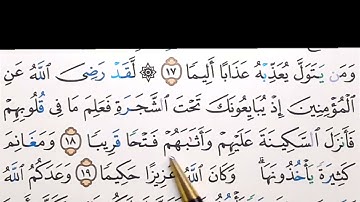 وَمَن يَتَوَلَّ يُعَذِّبْهُ عَذَابًا أَلِيمًا ١٧ ۞ لَّقَدْ رَضِيَ ٱللَّهُ عَنِ
ٱلْمُؤْمِنِينَ إِذْ يُبَايِعُونَكَ تَحْتَ ٱلشَّجَرَةِ فَعَلِمَ مَا فِي قُلُوبِهِمْ
فَأَنزَلَ ٱلسَّكِينَةَ عَلَيْهِمْ وَأَثَٰبَهُمْ فَتْحًا قَرِيبًا ١٨ وَمَغَانِمَ
كَثِيرَةً يَأْخُذُونَهَا ۗ وَكَانَ ٱللَّهُ عَزِيزًا حَكِيمًا ١٩ وَعَدَكُمُ ٱللَّهُ